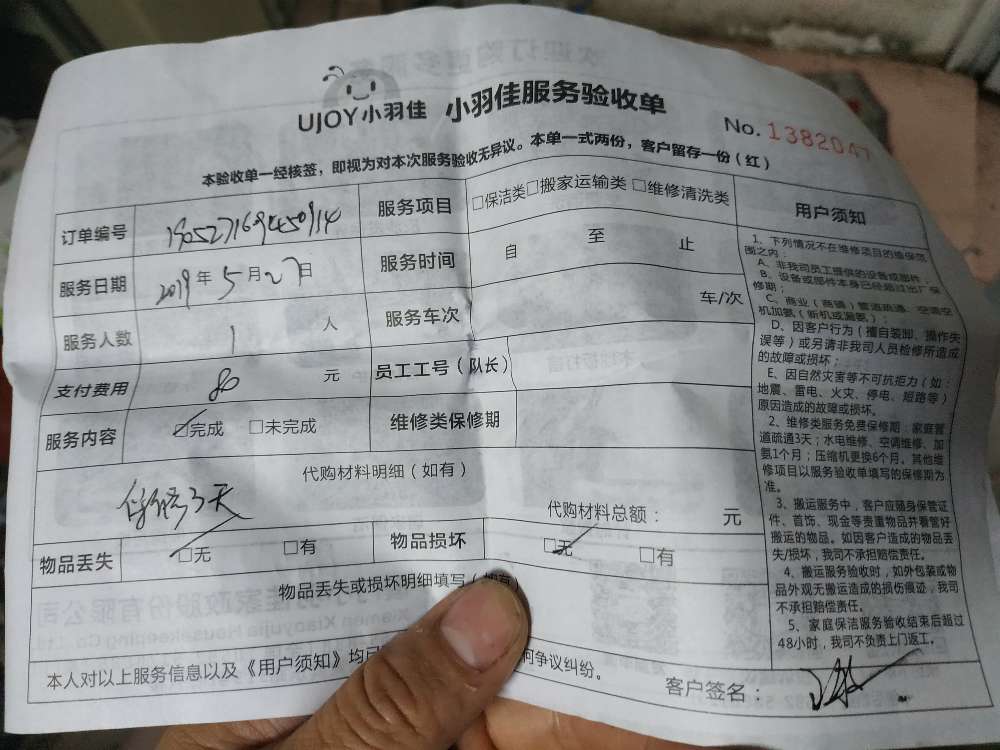 UJOY小羽佳 小羽佳服务验收单
No. 1382047
本验收单一经核签，即视为对本次服务验收无异议。本单一式两份，客户留存一份（红）
订单编号 服务项目 □保洁类□搬家运输类 □维修清洗类
服务日期 2019年5月27日 服务时间 自 至 止
服务人数 1 人 服务车次 车/次
支付费用 80 元 员工工号（队长）
服务内容 ☑完成 □未完成 维修类保修期
代购材料明细（如有）
保修3天
代购材料总额： 元
物品丢失 ☑无 □有 物品损坏 ☑无 □有
物品丢失或损坏明细填写（
本人对以上服务信息以及《用户须知》均已
何争议纠纷。
客户签名：
用户须知
1、下列情况不在维修项目的维保范
围之内：
A、非我司员工提供的设备或部件；
B、设备或部件本身已经超过出厂保
修期；
C、商业（商铺）管道疏通、空调空
机加氨（新机或漏氨）；
D、因客户行为（擅自装卸、操作失
误等）或另请非我司人员检修所造成
的故障或损坏；
E、因自然灾害等不可抗拒力（如：
地震、雷电、火灾、停电、短路等）
原因造成的故障或损坏。
2、维修类服务免费保修期：家庭管
道疏通3天；水电维修、空调维修、加
氨1个月；压缩机更换6个月。其他维
修项目以服务验收单填写的保修期为
准。
3、搬运服务中，客户应随身保管证
件、首饰、现金等贵重物品并看管好
搬运的物品。如因客户造成的物品丢
失/损坏，我司不承担赔偿责任。
4、搬运服务验收时，如外包装或物
品外观无搬运造成的损伤痕迹，我司
不承担赔偿责任。
5、家庭保洁服务验收结束后超过
48小时，我司不负责上门返工。